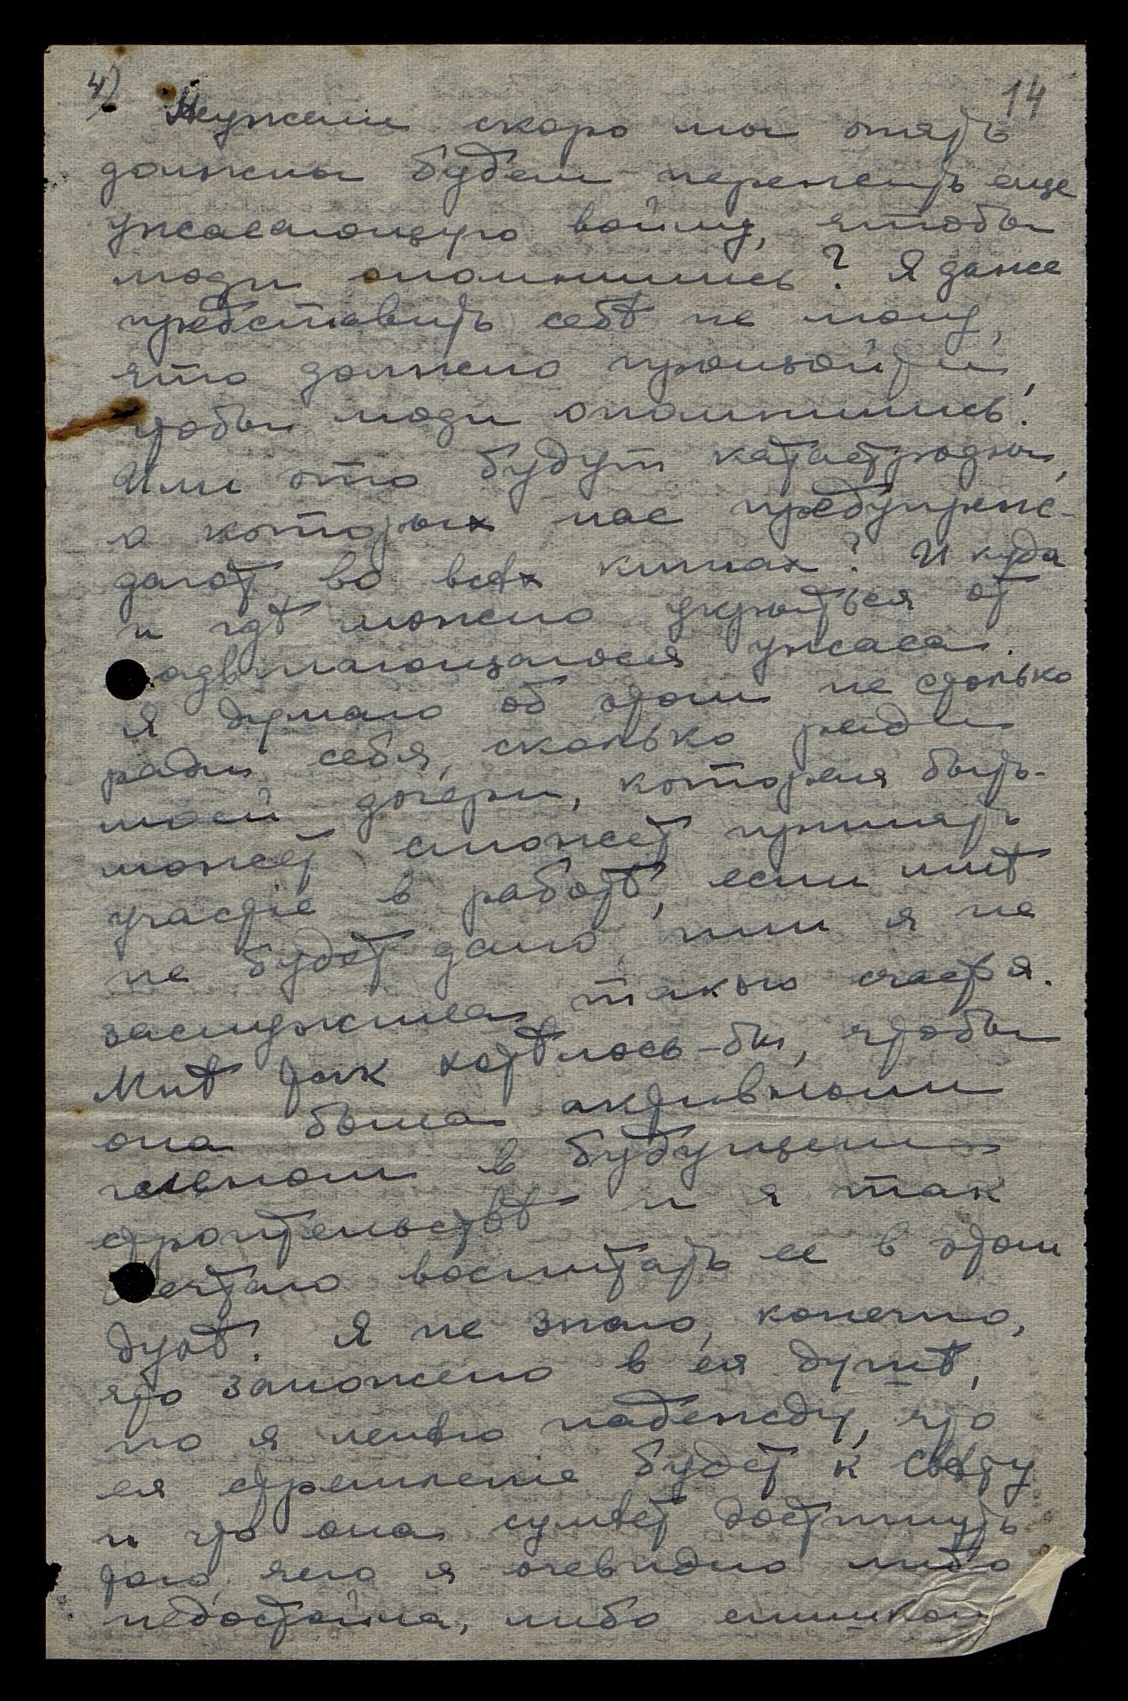 4) 14
Неужели скоро мы опять
должны будем пережить еще
ужасающую войну, чтобы
люди опомнились? Я даже
представить себѣ не могу,
что должно произойти,
чтобы люди опомнились.
Или это будут катастрофы,
о которых нас предупреж-
дают во всѣх книгах? И куда
и гдѣ можно укрыться от
надвигающагося ужаса.
Я думаю об этом не столько
ради себя, сколько ради
моей дочери, которая быть-
может сможет принять
участіе в работѣ, если мнѣ
не будет дано, или я не
заслужила такого счастья.
Мнѣ так хотѣлось-бы, чтобы
она была активным
членом в будущем
строительствѣ и я так
мечтаю воспитать ее в этом
духѣ. Я не знаю, конечно,
что заложено в ея душѣ,
но я лелѣю надежду, что
ея стремленіе будет к Свѣту
и что она сумѣет достигнуть
того, чего я очевидно либо
недостойна, либо слишком